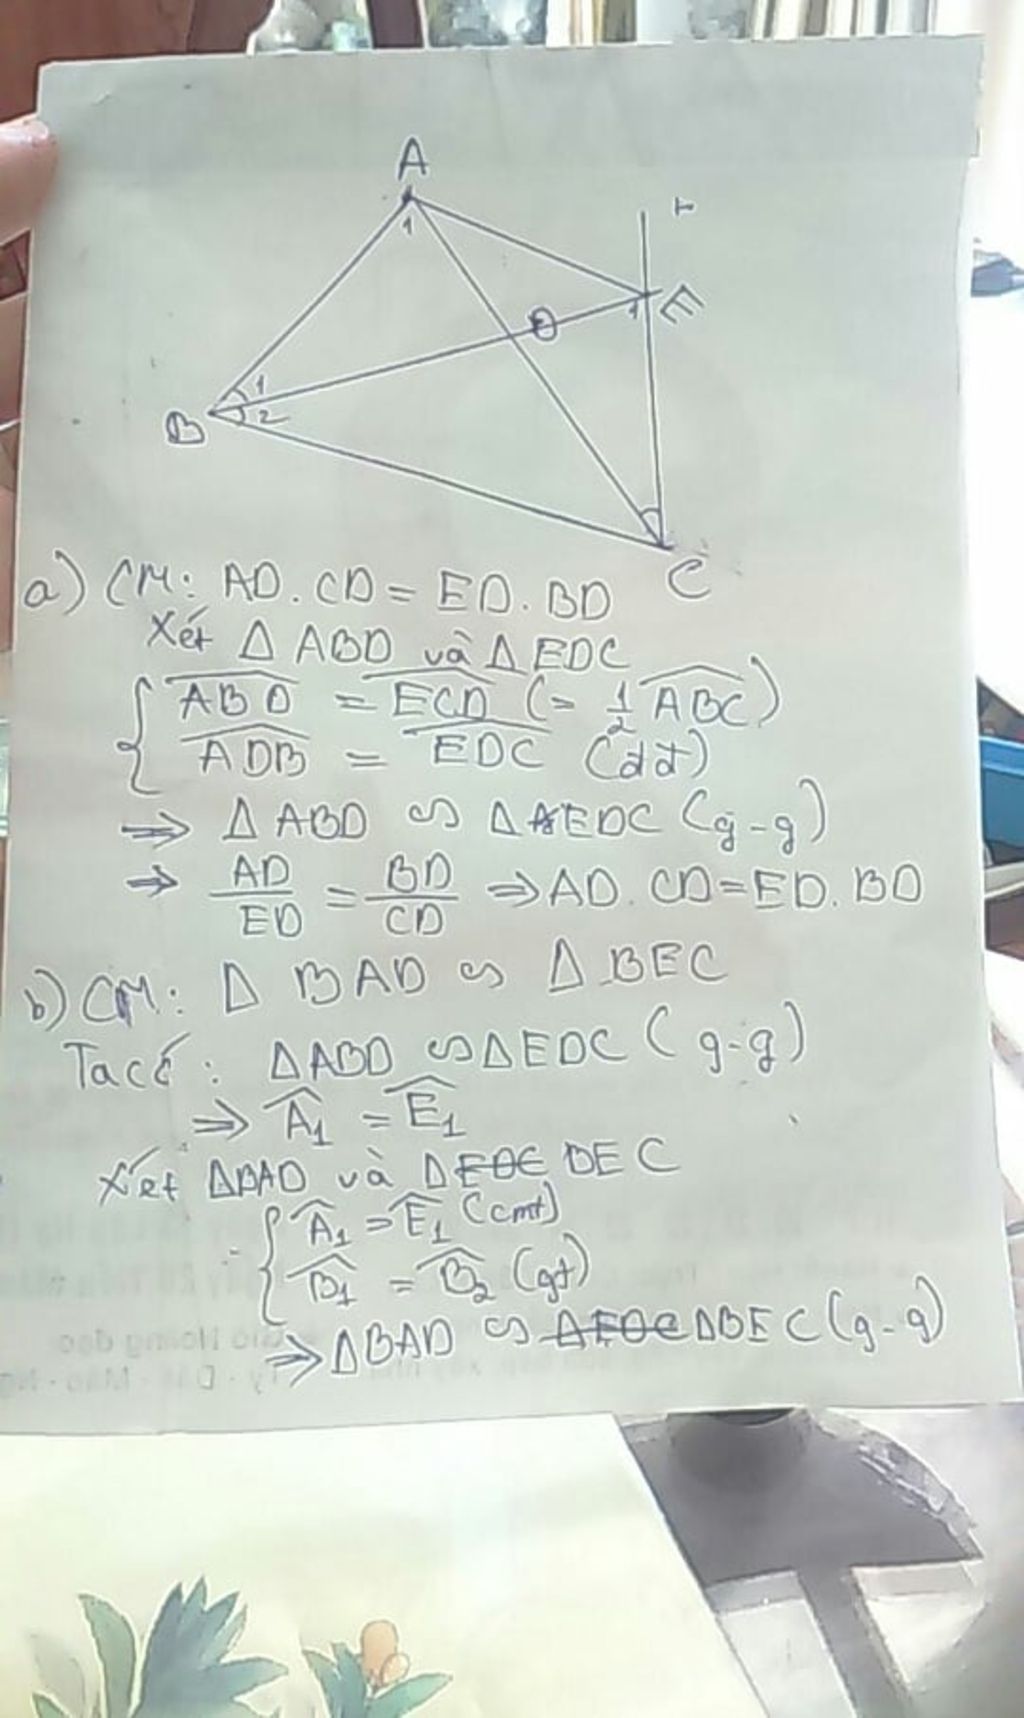 A
1
x
D
1
E
1
B
2
C
a) CM: AD.CD = ED.BD
Xét Δ ABD và Δ EDC
ABD = ECD (= 1/2 ABC)
ADB = EDC (dd)
⇒ Δ ABD ∽ Δ EDC (g-g)
⇒ AD/ED = BD/CD ⇒ AD.CD=ED.BD
b) CM: Δ BAD ∽ Δ BEC
Ta có: ΔABD ∽ ΔEDC (g-g)
⇒ A1 = E1
Xét ΔBAD và ΔEDC BEC
A1 = E1 (cmt)
B1 = B2 (gt)
⇒ ΔBAD ∽ ΔEDC ΔBEC (g-g)